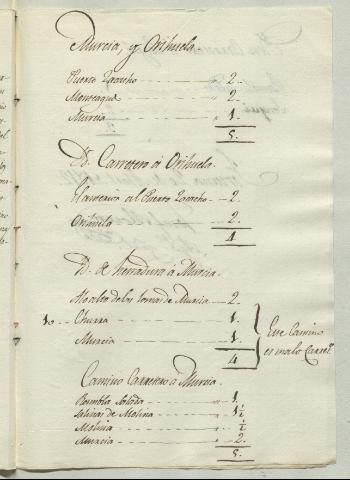 Murcia, y Orihuela
Puerto Zacacho 2.
Monteagudo 2.
Murcia 1.
5.
D. Carretero á Orihuela.
al Puerto Zacacho 2.
Orihuela 2.
4
D. de herradura a Murcia.
Mo alto de las lomas de Murcia 2.
10 Churra 1.
Murcia 1.
4
Este Camino
es malo Carret.
Camino Carretero a Murcia.
Rambla Salada 1.
Salinas de Molina 1½
Molina ½
Murcia 2.
5.